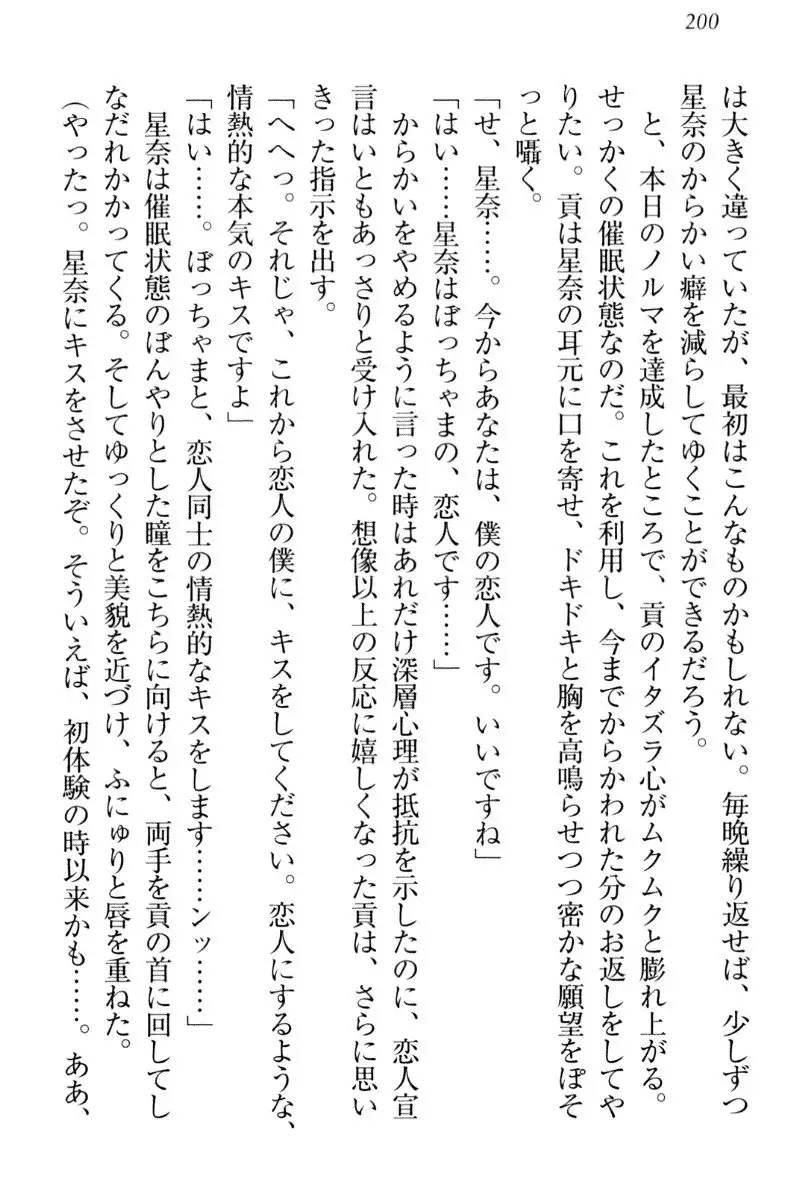 200
は大きく違っていたが、最初はこんなものかもしれない。毎晩繰り返せば、少しずつ
星奈のからかい癖を減らしてゆくことができるだろう。
と、本日のノルマを達成したところで、貢のイタズラ心がムクムクと膨れ上がる。
せっかくの催眠状態なのだ。これを利用し、今までからかわれた分のお返しをしてや
りたい。貢は星奈の耳元に口を寄せ、ドキドキと胸を高鳴らせつつ密かな願望をぽそ
っと囁く。
「せ、星奈……。今からあなたは、僕の恋人です。いいですね」
「はい……星奈はぼっちゃまの、恋人です……」
からかいをやめるように言った時はあれだけ深層心理が抵抗を示したのに、恋人宣
言はいともあっさりと受け入れた。想像以上の反応に嬉しくなった貢は、さらに思い
きった指示を出す。
「へへっ。それじゃ、これから恋人の僕に、キスをしてください。恋人にするような、
情熱的な本気のキスですよ」
「はい……。ぼっちゃまと、恋人同士の情熱的なキスをします……ンッ……」
星奈は催眠状態のぼんやりとした瞳をこちらに向けると、両手を貢の首に回してし
なだれかかってくる。そしてゆっくりと美貌を近づけ、ふにゅりと唇を重ねた。
（やったっ。星奈にキスをさせたぞ。そういえば、初体験の時以来かも……。ああ、